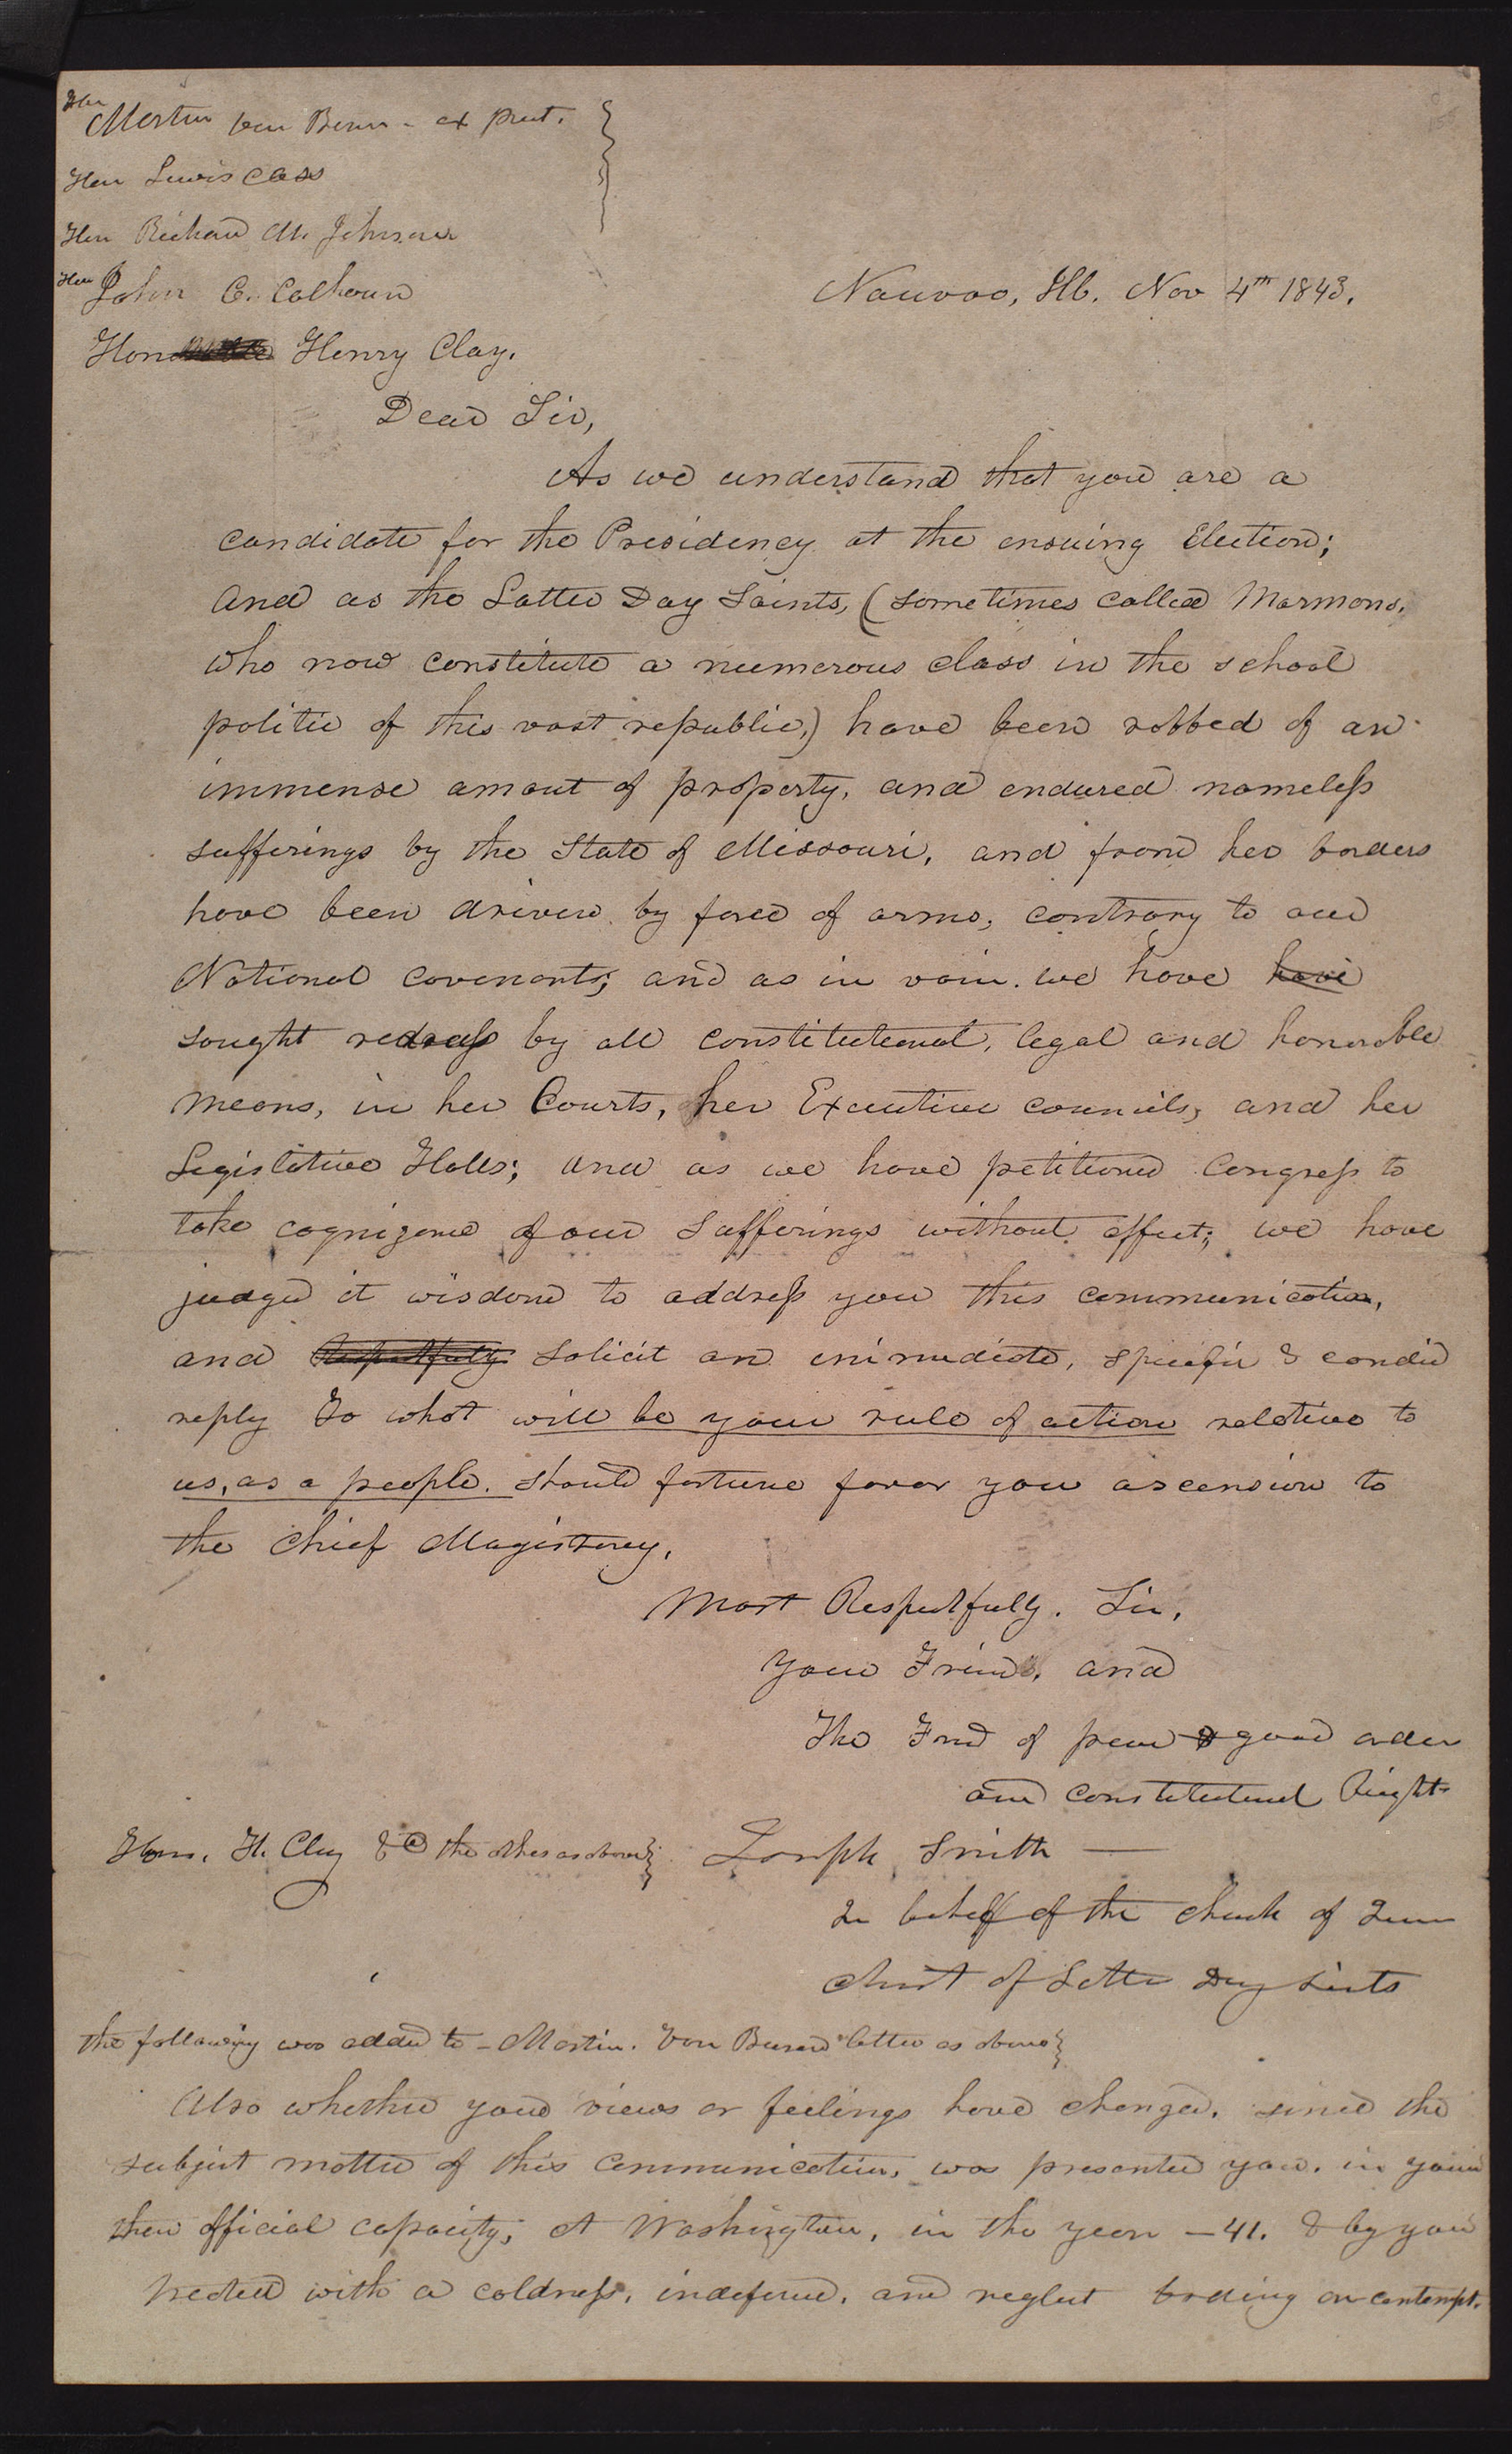 Hon
Martin Van Buren - ex Prest.
Hon Lewis Cass
Hon Richard M. Johnson
Hon John C. Calhoun
Nauvoo, Ill. Nov 4th 1843.
Hon Henry Clay.
Dear Sir,
As we understand that you are a
candidate for the Presidency at the ensuing Election;
and as the Latter Day Saints, (sometimes called Mormons,
who now constitute a numerous class in the school
politic of this vast republic,) have been robbed of an
immense amout of property, and endured nameless
sufferings by the State of Missouri, and from her borders
have been driven by force of arms, contrary to our
National covenants; and as in vain we have have
sought redress by all constitutional, legal and honorable
means, in her Courts, her Executive councils, and her
Legislative Halls; and as we have petitioned Congress to
take cognizance of our sufferings without effect; we have
judged it wisdom to address you this communication,
and Respectfully solicit an immediate, specific & candid
reply To what will be your rule of action relative to
us, as a people. should fortune favor your ascension to
the Chief Magistracy.
Most Respectfully. Sir,
your Friend, and
The Frend of peace & good order
and constitutional Rights
Hon. H. Clay & the others as above
Joseph Smith
In behalf of the Church of Jesus
Christ of Latter Day Saints
the following was added to - Martin. Van Buren's letter as above
Also whether your views or feelings have changed, since the
subject matter of this communication, was presented you. in your
then official capacity, at Washington, in the year - 41. & by you
treated with a coldness, indifference, and neglect bording on contempt.